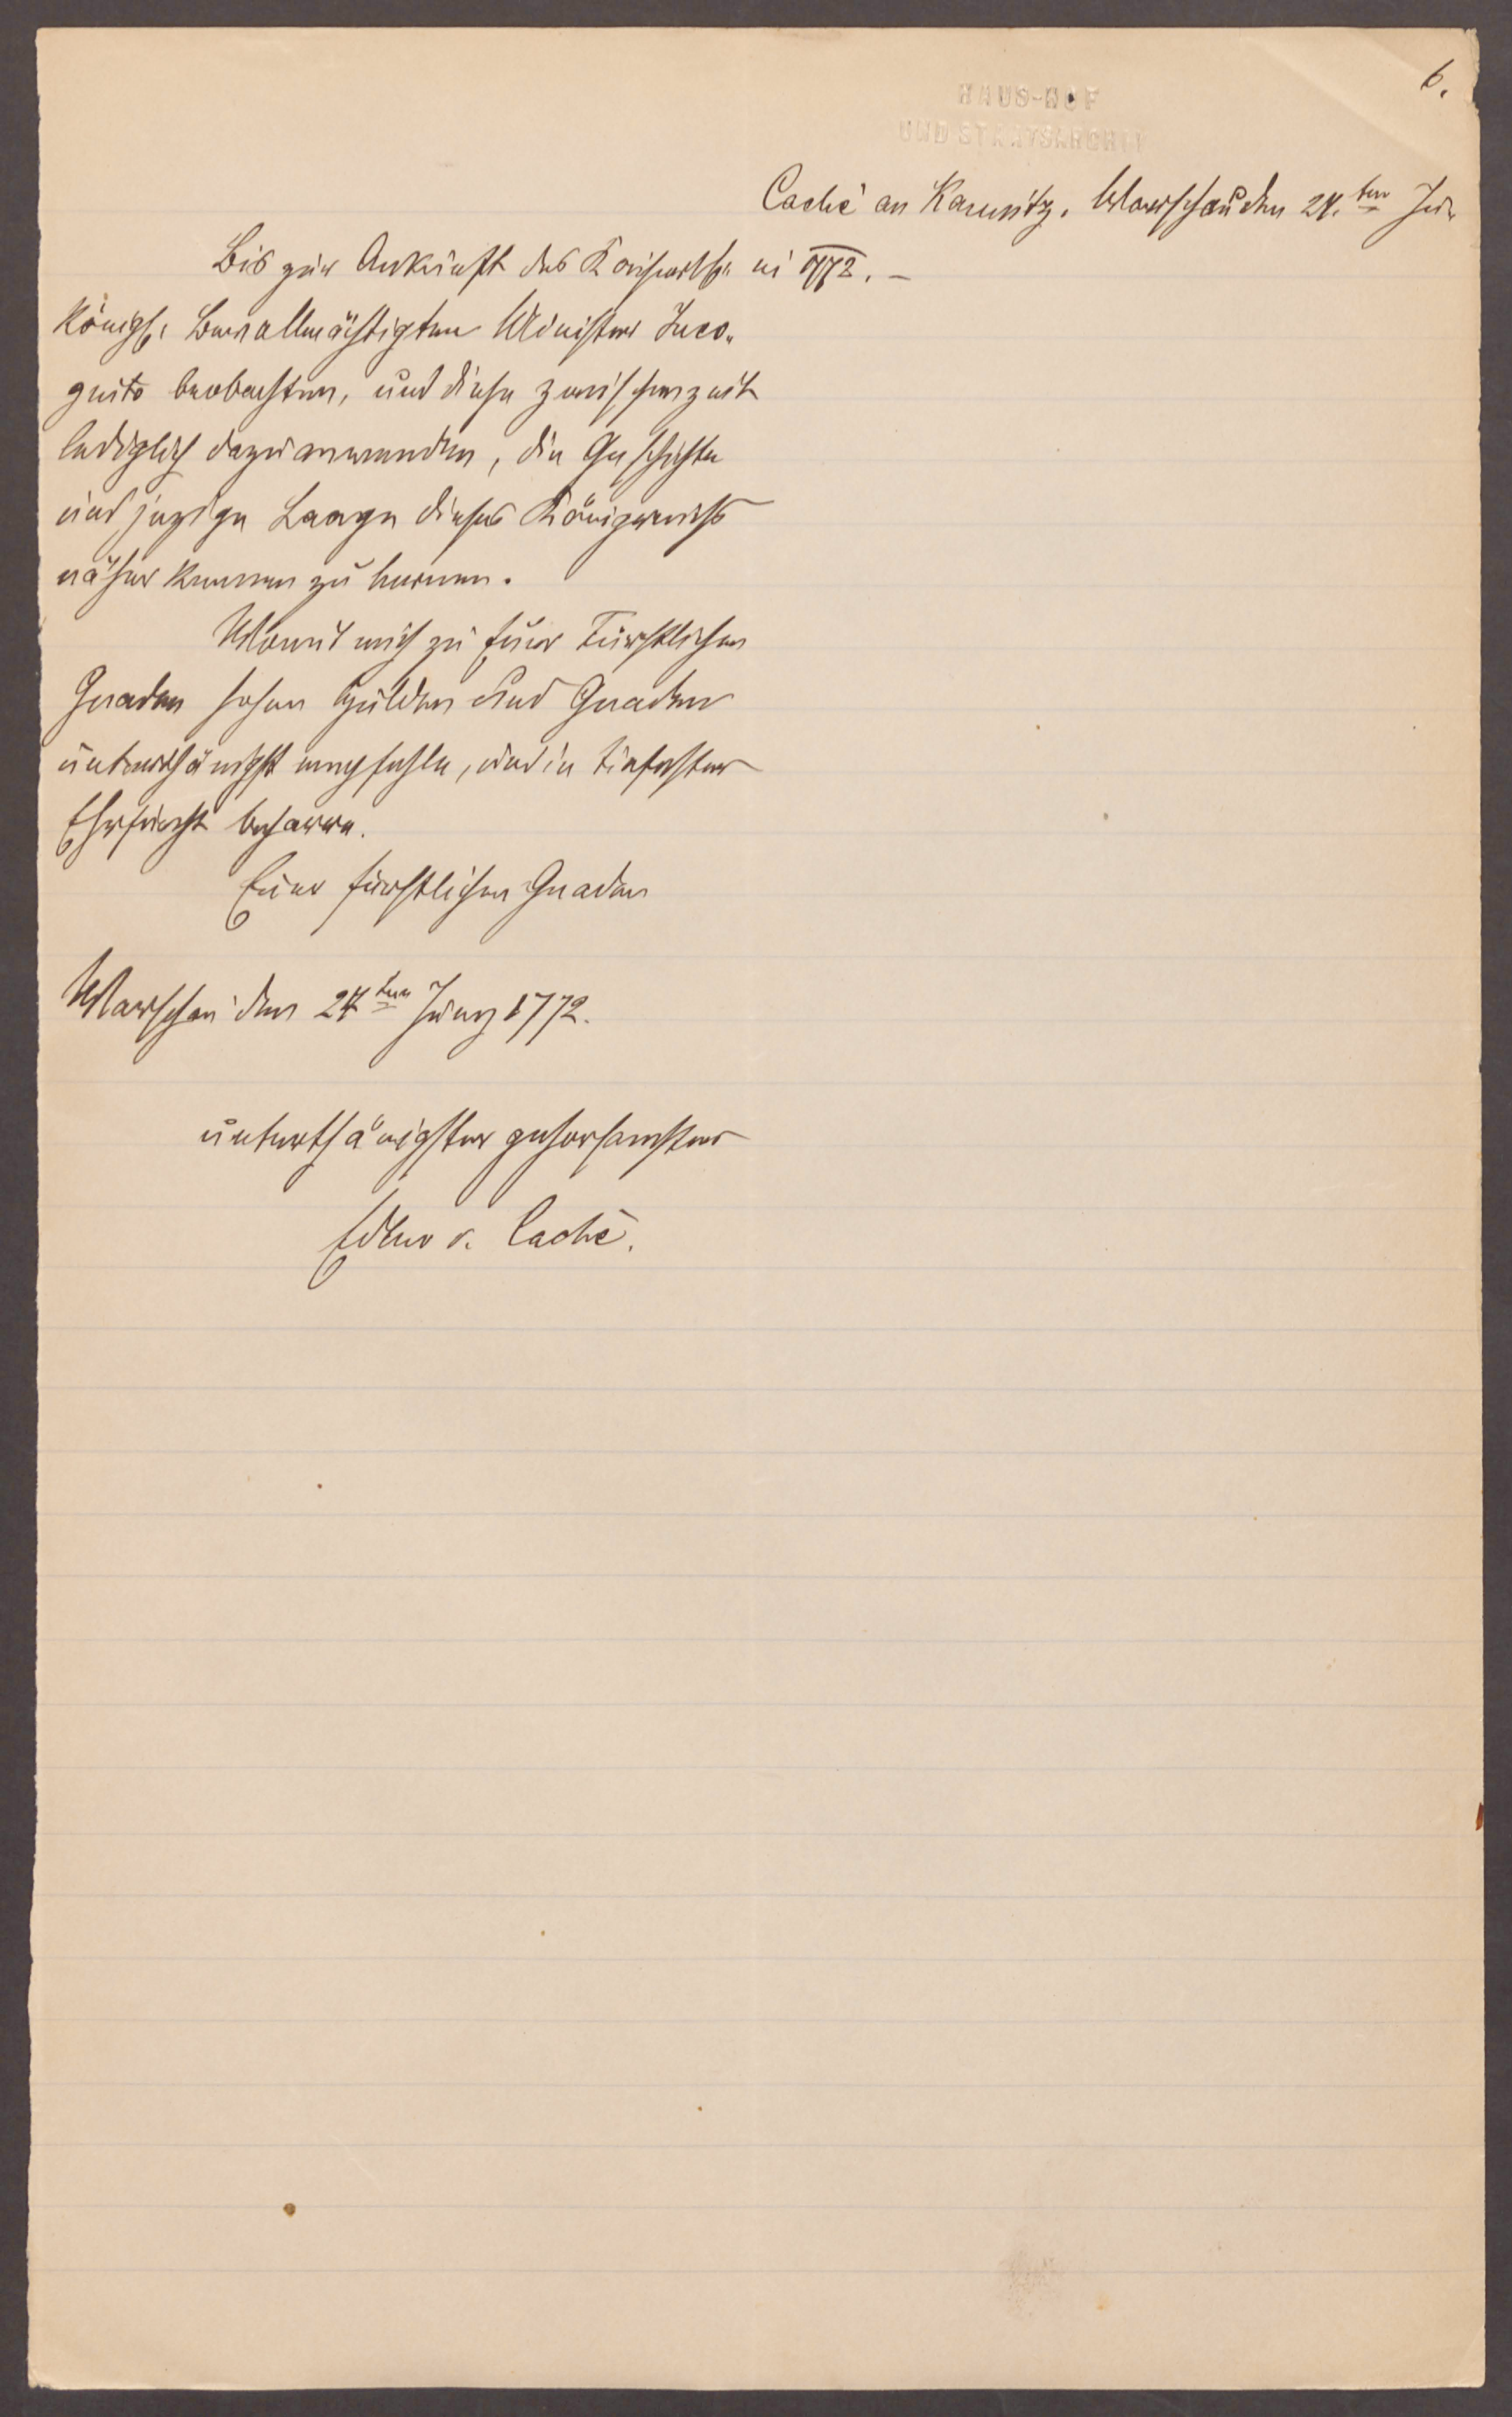 6.
HAUS-HOF
UND STAATSARCHIV
Caché an Kaunitz. Warschau den 24.ten Ju-
ni 1772. –
Bis zur Ankunft des Kaiserlh.
Königh. Bevollmächtigten Ministers Inco-
gnito beobachten, und diese Zwischenzeit
lediglich dazu anwenden, die Geschichte
und jezige Laage dieses Königreichs
näher kennen zu lernen.
Womit mich zu Euer Fürstlichen
Gnaden hohen Hulden und Gnaden
unterthänigst empfehle, und in tiefester
Ehrfurcht beharre.
Euer fürstlichen Gnaden
Warschau den 24ten Juny 1772.
unterthänigster gehorsamster
Edler v. Caché.